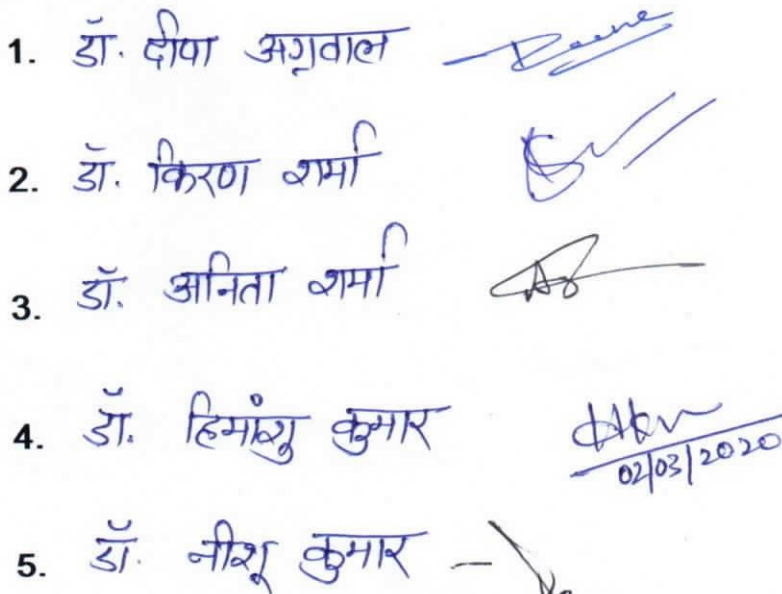 1. डॉ. दीपा अग्रवाल
2. डॉ. किरण शर्मा
3. डॉ. अनिता शर्मा
4. डॉ. हिमांशु कुमार
02/03/2020
5. डॉ. नीशू कुमार -